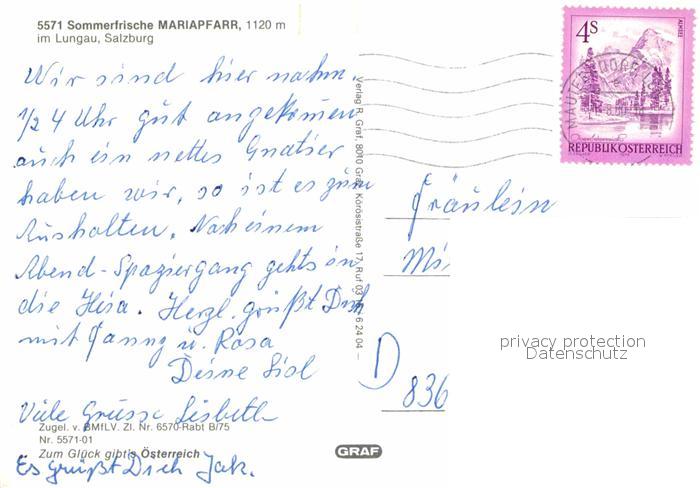 5571 Sommerfrische MARIAPFARR, 1120 m
im Lungau, Salzburg
Wir sind hier nahm.
1/2 4 Uhr gut angekommen
auch ein nettes Quatier
haben wir, so ist es zum
Aushalten. Nach einem
Abend-Spaziergang gehts in
die Heia. Herzl. grüßt Dich
mit Fanny u. Rosa
Deine Lisl
Viele Grüsse Lisbeth
Zugel. v. BMfLV. Zl. Nr. 6570-Rabt B/75
Nr. 5571-01
Zum Glück gibt's Österreich
Es grüßt Dich Jak.
Verlag R. Graf, 8010 Graz, Körösistraße 17, Ruf 03 6 24 04
GRAF
4S
ALMSEE
REPUBLIK ÖSTERREICH
MAUTERNDORF
Fräulein
Mi
D
836
privacy protection
Datenschutz